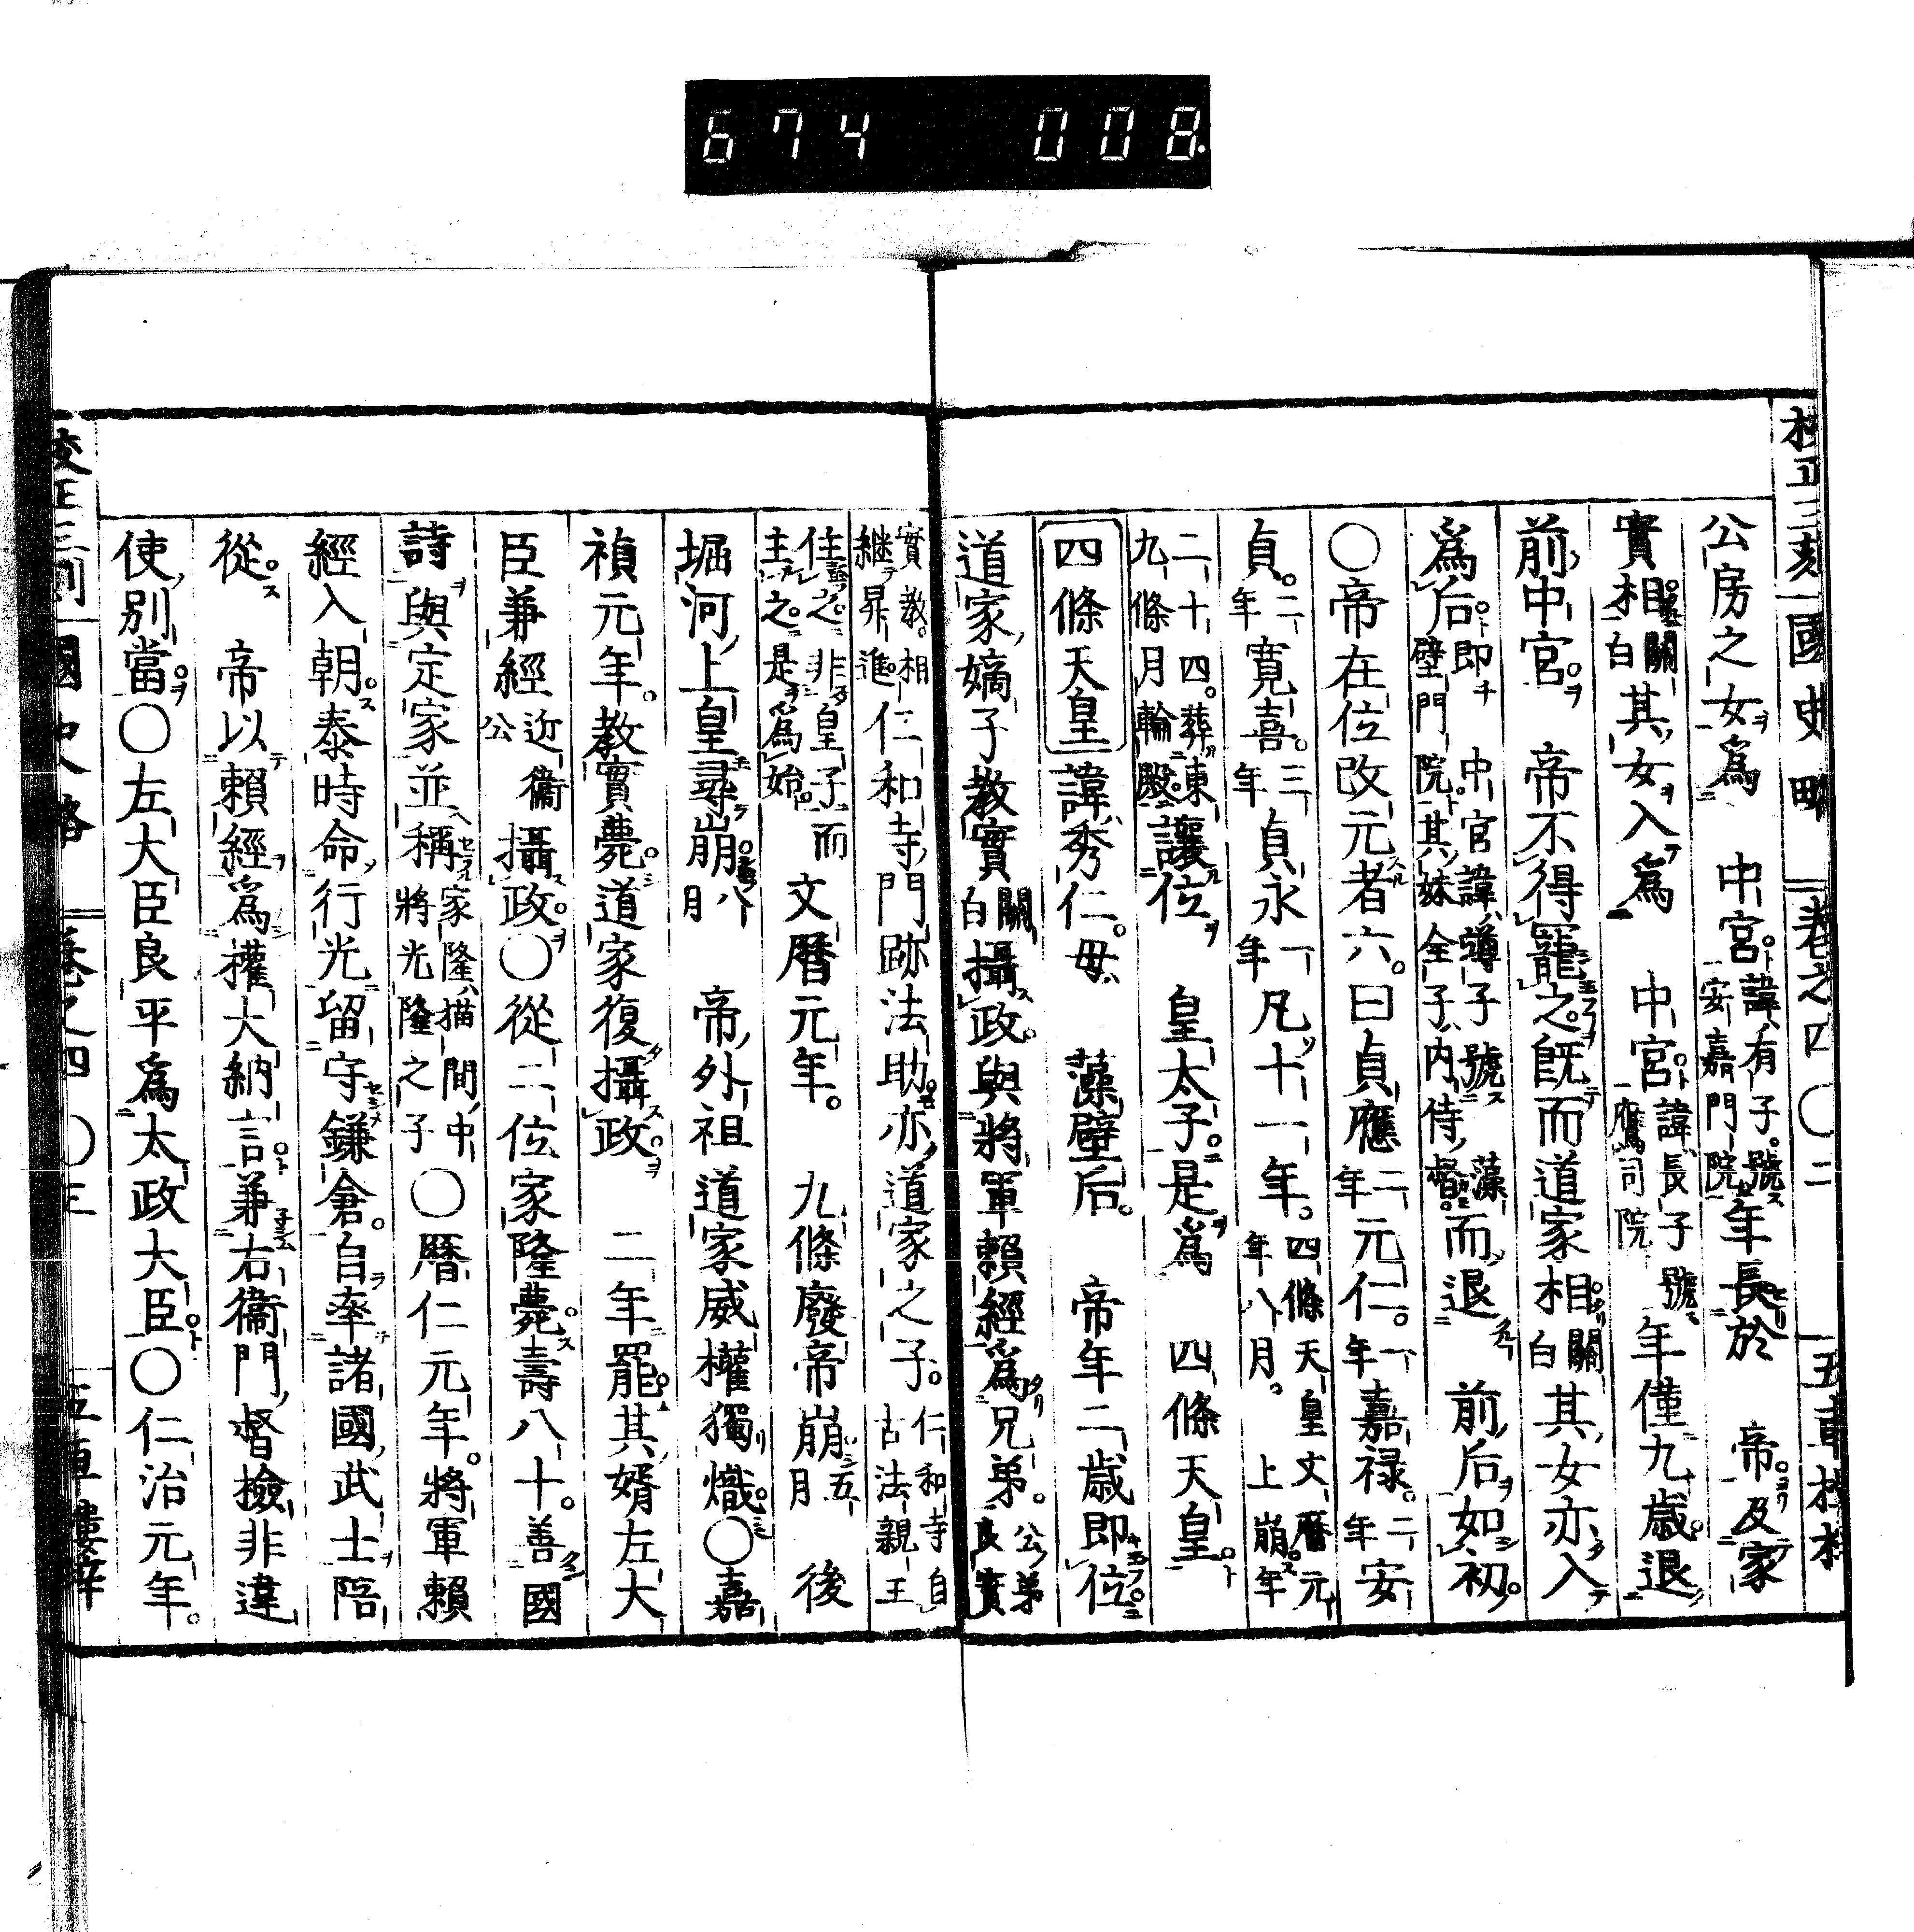 674 008
校正三刻 國史略 卷之四 〇二 五車樓梓
公房之女爲 中宮諱有子。號安嘉門院年長於 帝及家
實相關白其女入爲 中宮諱長子號鷹司院年僅九歳退
前中宮 帝不得寵之既而道家相關白其女亦入
爲后。即 中宮諱竴子號藻壁門院其妹全子内侍督。而退 前后如初。
〇帝在位改元者六。曰貞應二年元仁。一年嘉禄。二年安
貞。二年寛喜。三年貞永一年凡十一年。四條天皇文暦元年八月。 上崩年
二十四。葬東九條月輪殿讓位 皇太子。是爲 四條天皇
四條天皇諱秀仁。母 藻壁后。 帝年二歳即位
道家嫡子教實關白攝政。與將軍賴經爲兄弟。公弟良實
實教。相継昇進仁和寺門跡法助亦道家之子。仁和寺自古法親王
住之非皇子而主之。是爲始。 文暦元年。 九條廢帝崩五月 後
堀河上皇尋崩八月 帝外祖道家威權獨熾。〇嘉
禎元年。教實薨。道家復攝政 二年罷其婿左大
臣兼經近衞公攝政。〇從二位家隆薨。壽八十。善國
詩與定家並稱家隆猫間中將光隆之子〇暦仁元年。將軍賴
經入朝。泰時命行光留守鎌倉。自率諸國武士陪
從。 帝以賴經爲權大納言兼右衞門督檢非違
使別當。〇左大臣良平爲太政大臣〇仁治元年。
校正三刻 國史略 卷之四 〇三 五車樓梓